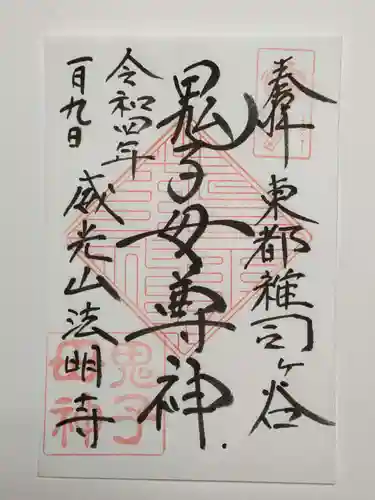 奉拝
東都雑司ケ谷
鬼子母尊神
令和四年
一月九日
威光山法明寺
鬼子
母神